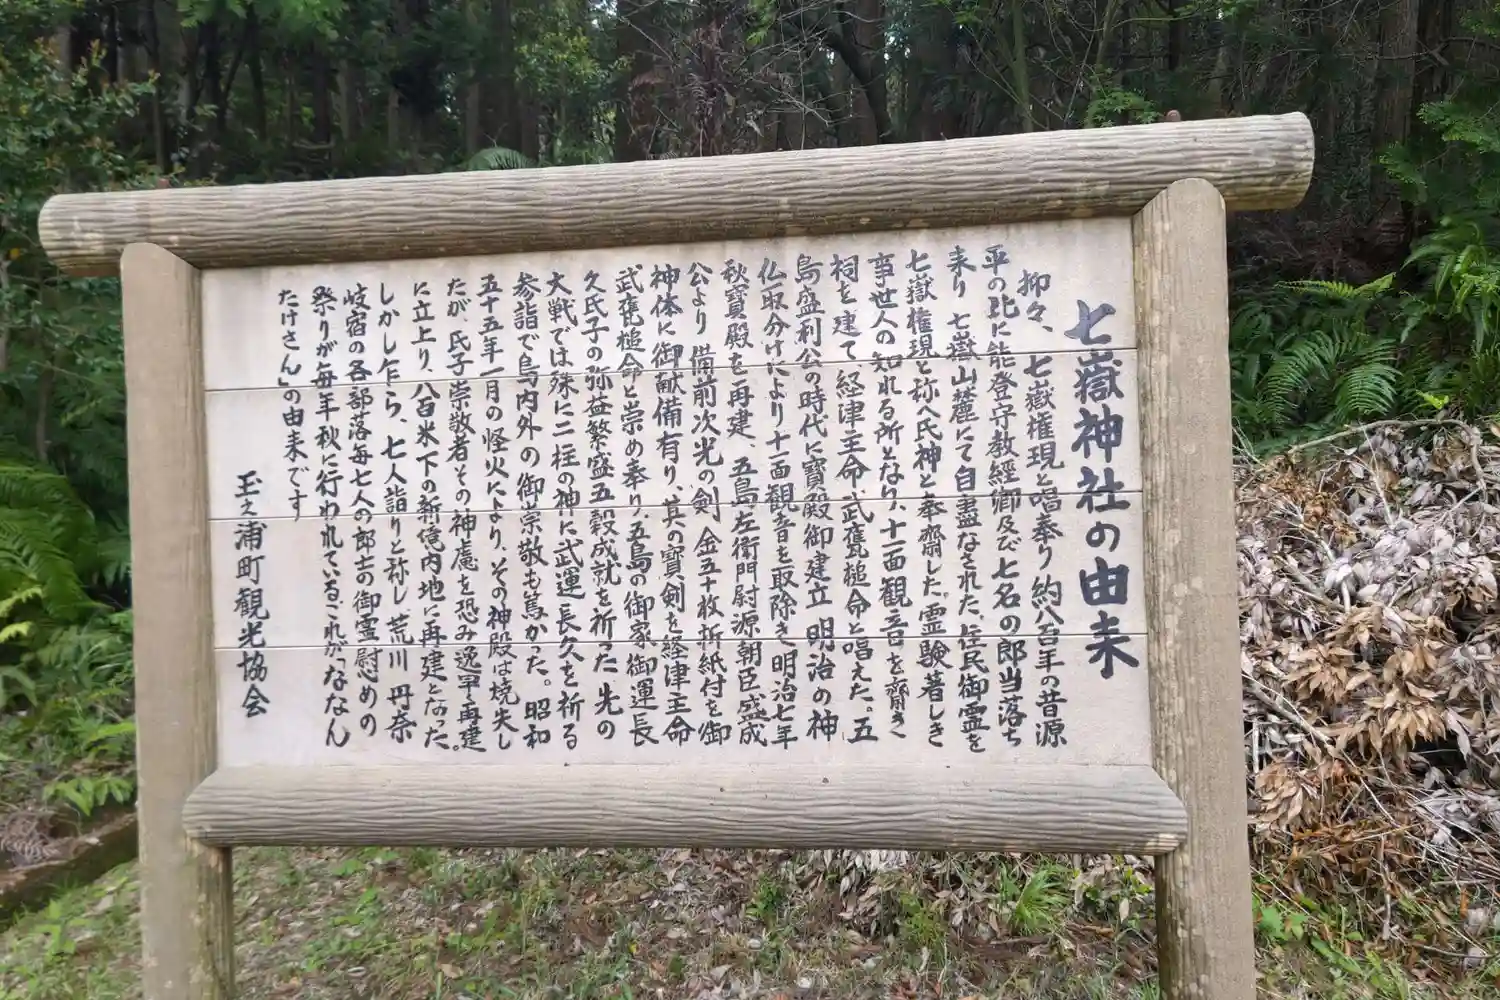 七嶽神社の由来
抑々、七嶽権現と唱奉り約八百年の昔源
平の乱に能登守教經卿及び七名の郎当落ち
来り七嶽山麓にて自盡なされた、住民御霊を
七嶽権現と称へ氏神と奉齋した。霊験著しき
事世人の知れる所となり、十一面観音を齋き
祠を建て、経津主命、武甕槌命と唱えた。五
島盛利公の時代に寶殿御建立明治の神
仏取分けにより十一面観音を取除き明治七年
秋寶殿を再建、五島左衛門尉源朝臣盛成
公より備前次光の剣、金五十枚折紙付を御
神体に御献備有り、其の寶剣を経津主命
武甕槌命と崇め奉り、五島の御家御運長
久氏子の弥益繁盛五穀成就を祈った先の
大戦では殊に二柱の神に武運長久を祈る
参詣で島内外の御崇敬も篤かった。昭和
五十五年一月の怪火により、その神殿は焼失し
たが、氏子崇敬者その神慮を恐み逸早再建
に立上り、八百米下の新境内地に再建となった。
しかし乍ら、七人詣りと称し、荒川、丹奈
岐宿の各部落毎七人の郎士の御霊慰めの
祭りが毎年秋に行われているこれが「ななん
たけさん」の由来です
玉之浦町観光協会